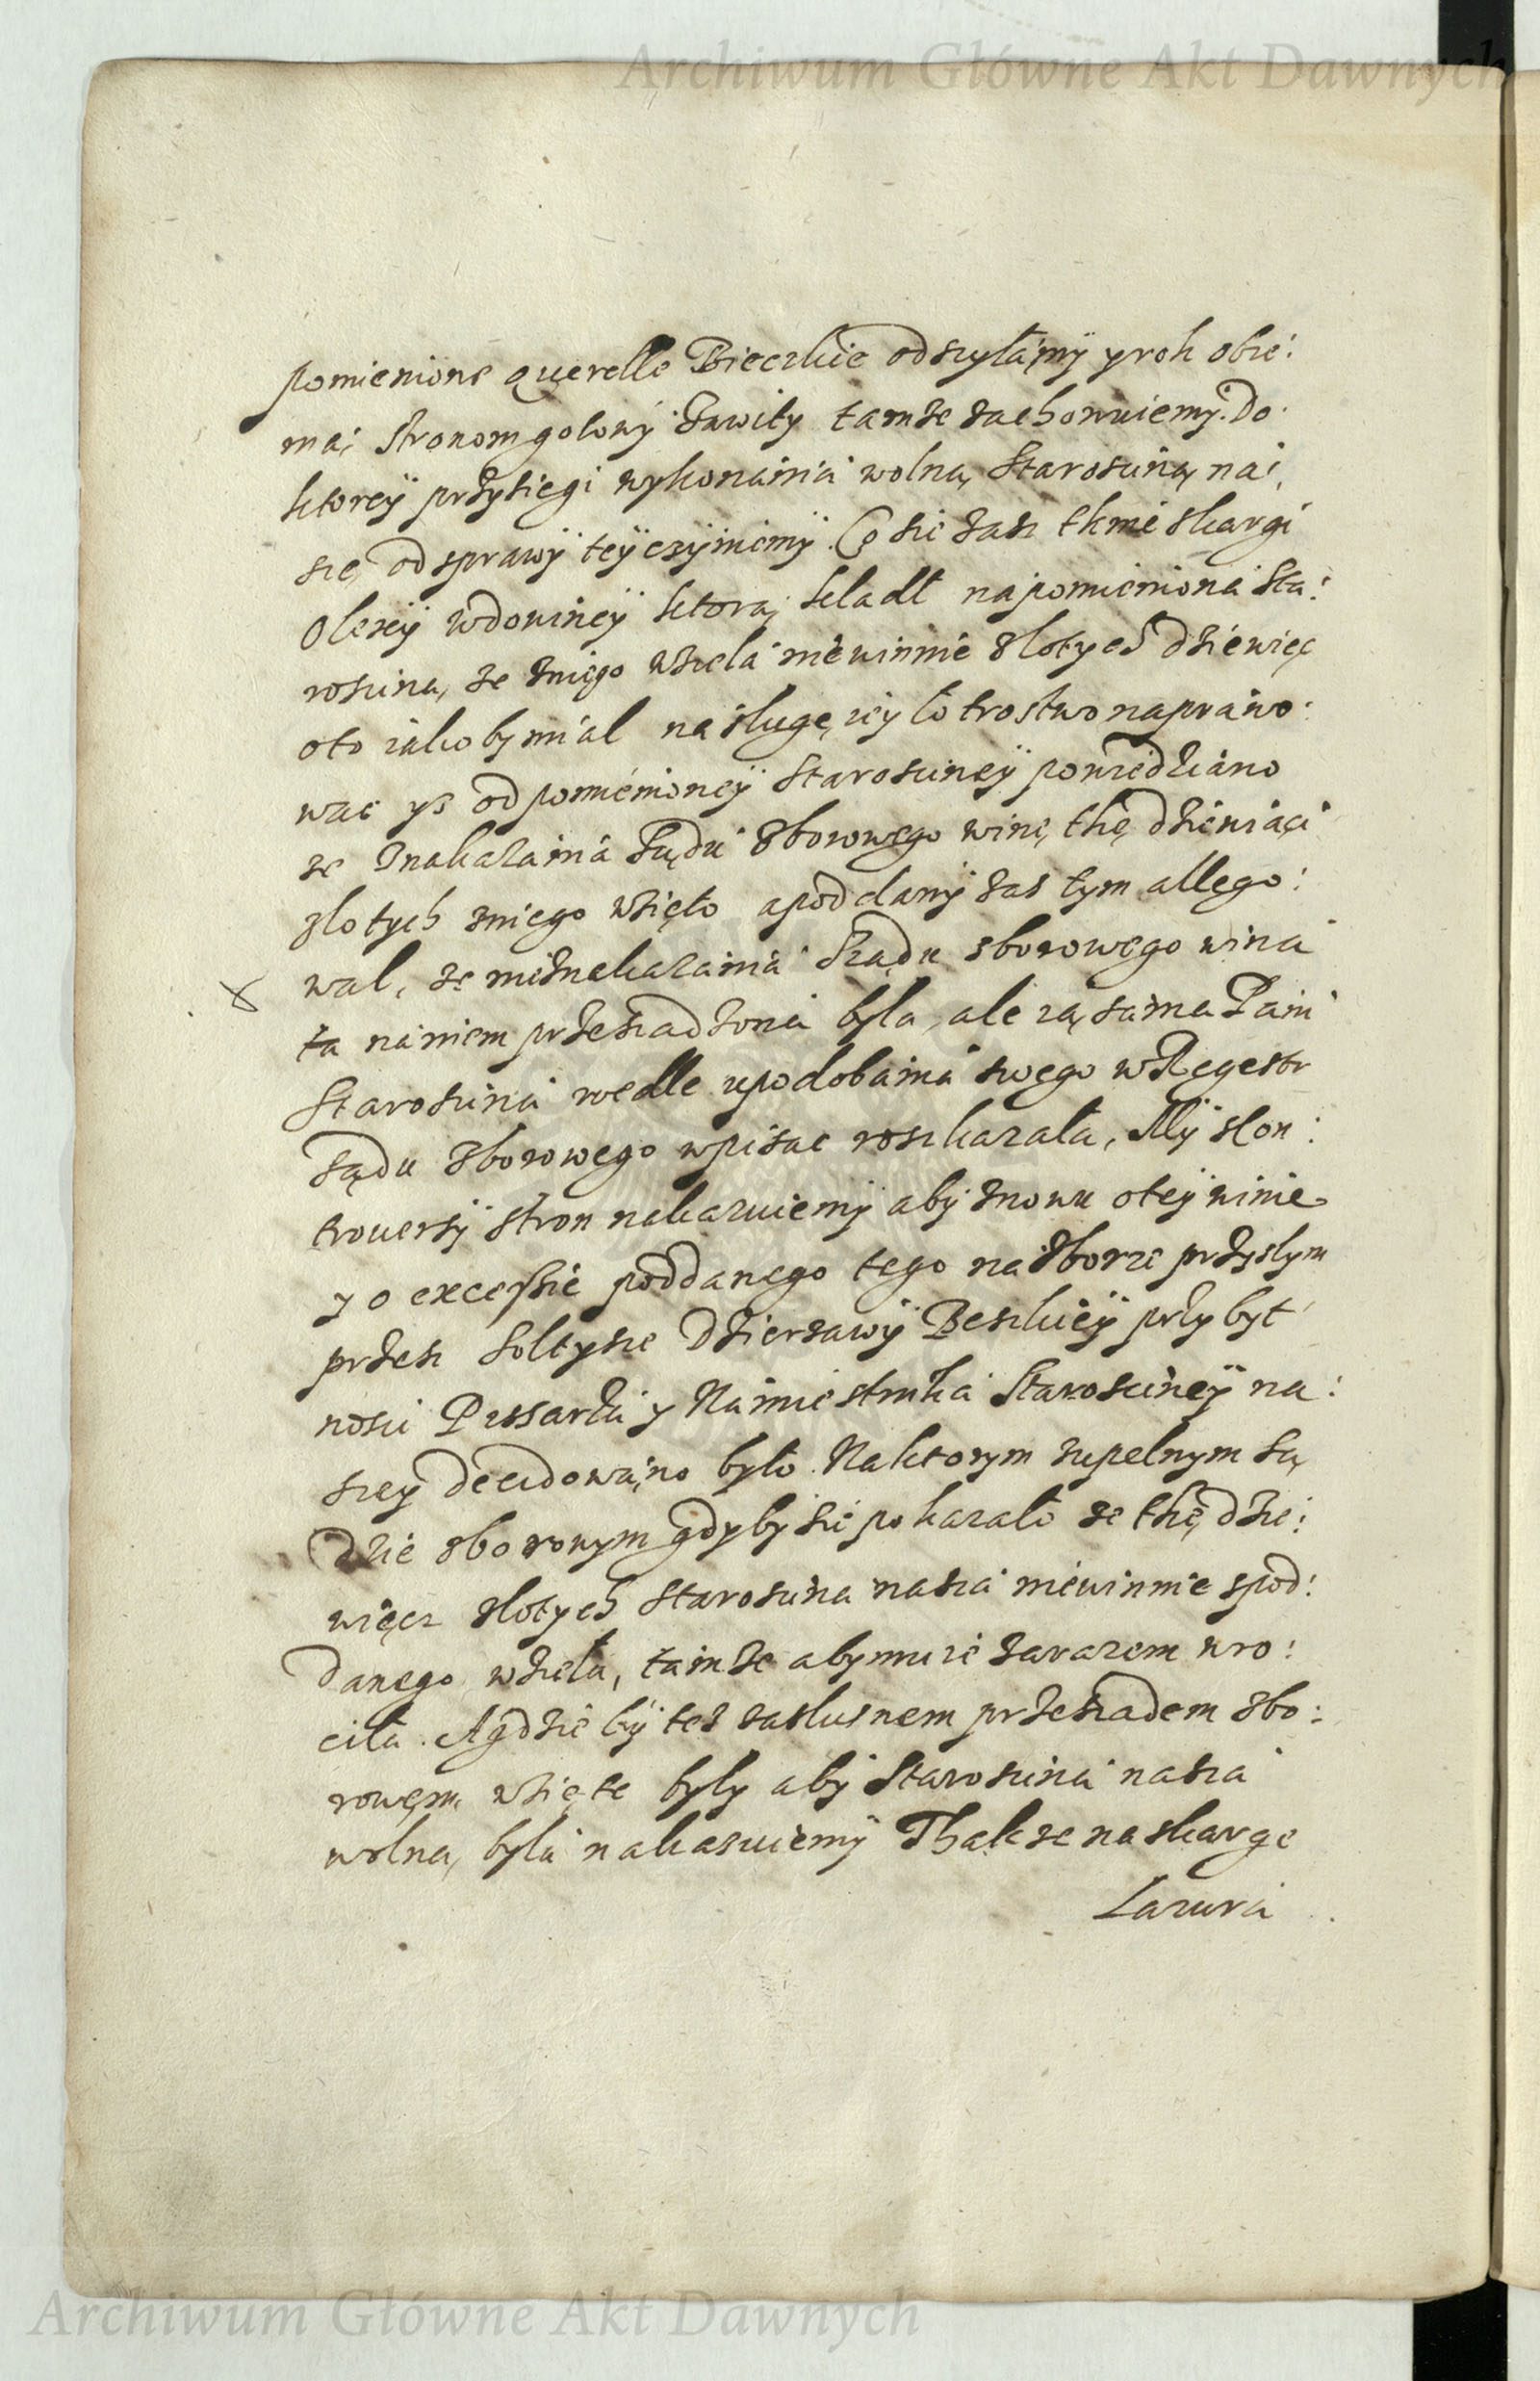 Archiwum Główne Akt Dawnych
pomienione querelle Bieczkie odszyłamÿ y rok obie:
ma, stronom gotowÿ Zawity tamze zachowuiemÿ. Do
ktoreÿ przysiegi wykonania wolną Staroscinę na:
szę od sprawÿ teÿ czÿniemÿ. Co sie zasz tknie skargi
Olexeÿ wdowineÿ ktorą kladl na pomieniona Sta:
roscinę, ze zniego wziela niewinnie zlotych dziewięc
oto iakoby mial na slugę ieÿ lotrostwo naprawo:
wac ys od pomienioneÿ Staroscineÿ powiedziano
ze znakazania Sądu zborowego winę thę dziewiąci
zlotych zniego wzięto a poddanÿ zas tym allego:
wal, ze nieznakazania Sządu zborowego wina
ta naniem przesadzona byla, ale ią sama Pani
Staroscina wedle upodobania swego w Regestr
sądu zborowego wpisac roszkazala, Mÿ s kon:
trowersÿ stron nakazuiemÿ abÿ znowu oteÿ winie
y o excessie poddanego tego na zborze przyslym
przesz soltysze Dzierzawÿ Beszkieÿ przy byt
nosci Pissarza y Namiestnika Staroscineÿ na:
szeÿ decidowano bylo. Naktorym zupelnym są
dzie zborowym gdyby sie pokazalo ze thę dzie:
więcz zlotych Staroscina nasza niewinnie spod:
danego wziela, tamze aby mu ie zarazem wro:
cila. A gdzie bÿ tez zaslusnem przesadem zbo:
rowęm wzięte byly abÿ Staroscina nasza
wolną byla nakazuiemÿ Thakze na skarge
Lazura
Archiwum Główne Akt Dawnych